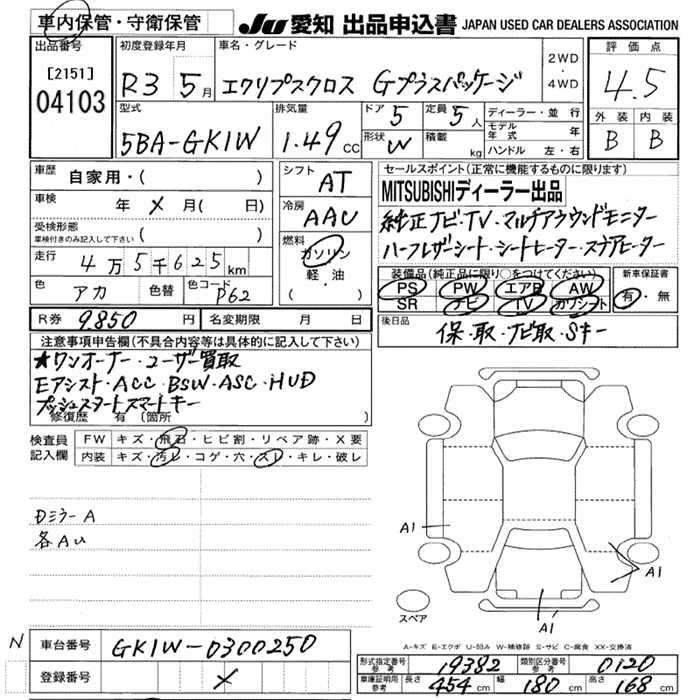 車内保管・守衛保管 JU 愛知 出品申込書 JAPAN USED CAR DEALERS ASSOCIATION
出品番号 初度登録年月 車名・グレード 評価点
[2151] 04103 R3 5月 エクリプスクロス Gプラスパッケージ 2WD・4WD 4.5
型式 排気量 ドア 5 定員 5人 ディーラー・並行 外装 内装
5BA-GK1W 1.49cc 形状 W 積載 kg モデル年式 年 B B
ハンドル 左・右
車歴 自家用・( ) シフト AT セールスポイント(正常に機能するものに限ります)
車検 年 メ月( 日) 冷房 AAC MITSUBISHIディーラー出品
受検形態 車検付きのみ記入して下さい ( ) 純正ナビ・TV・マルチアラウンドモニター
走行 4万5千625km 燃料 ガソリン 軽・油 ・( ) ハーフレザーシート・シートヒーター・ステアヒーター
色 アカ 色替 色コード P62 装備品(純正品に限り○をつけてください) 新車保証書
PS PW エアB AW 有・無
SR ナビ TV カワシート
R券 9.850円 名変期限 月 日 後日品 保・取・ナビ取・Sキー
注意事項申告欄(不具合内容等は具体的に記入して下さい)
★ワンオーナー・ユーザー買取
Eアシスト・ACC・BSW・ASC・HUD
プッシュスタートスマートキー
修復歴 有 〔箇所 〕
検査員記入欄 FW キズ・飛石・ヒビ割・リペア跡・X要
内装 キズ・汚レ・コゲ・穴・スレ・キレ・破レ
Dミラー A
各AU
A1 A1
スペア A1
A-キズ E-エクボ U-凹み W-補修跡 S-サビ C-腐食 XX-交換済
N 車台番号 GK1W-0300250 形式指定番号 参考 19382 類別区分番号 参考 0120
登録番号 メ 車庫証明用 参考 長さ 454cm 幅 180cm 高さ 168cm